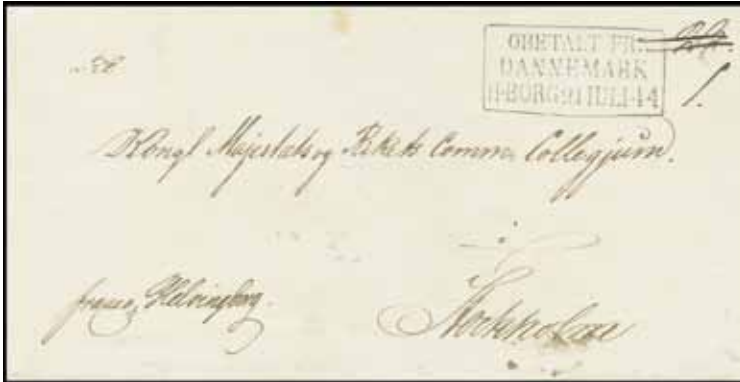 OBETALT FR.
DANNEMARK
H-BORG 9 JULI 44
1.
Kongl Majestäts og Rikets Comme Collegjum.
franco Helsingborg.
Stockholm